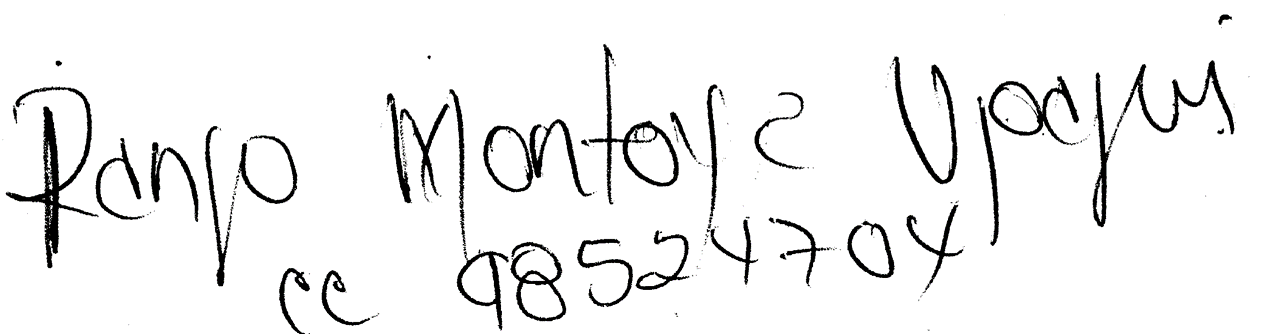 Ranyo Montoya Upegui
cc 98524704